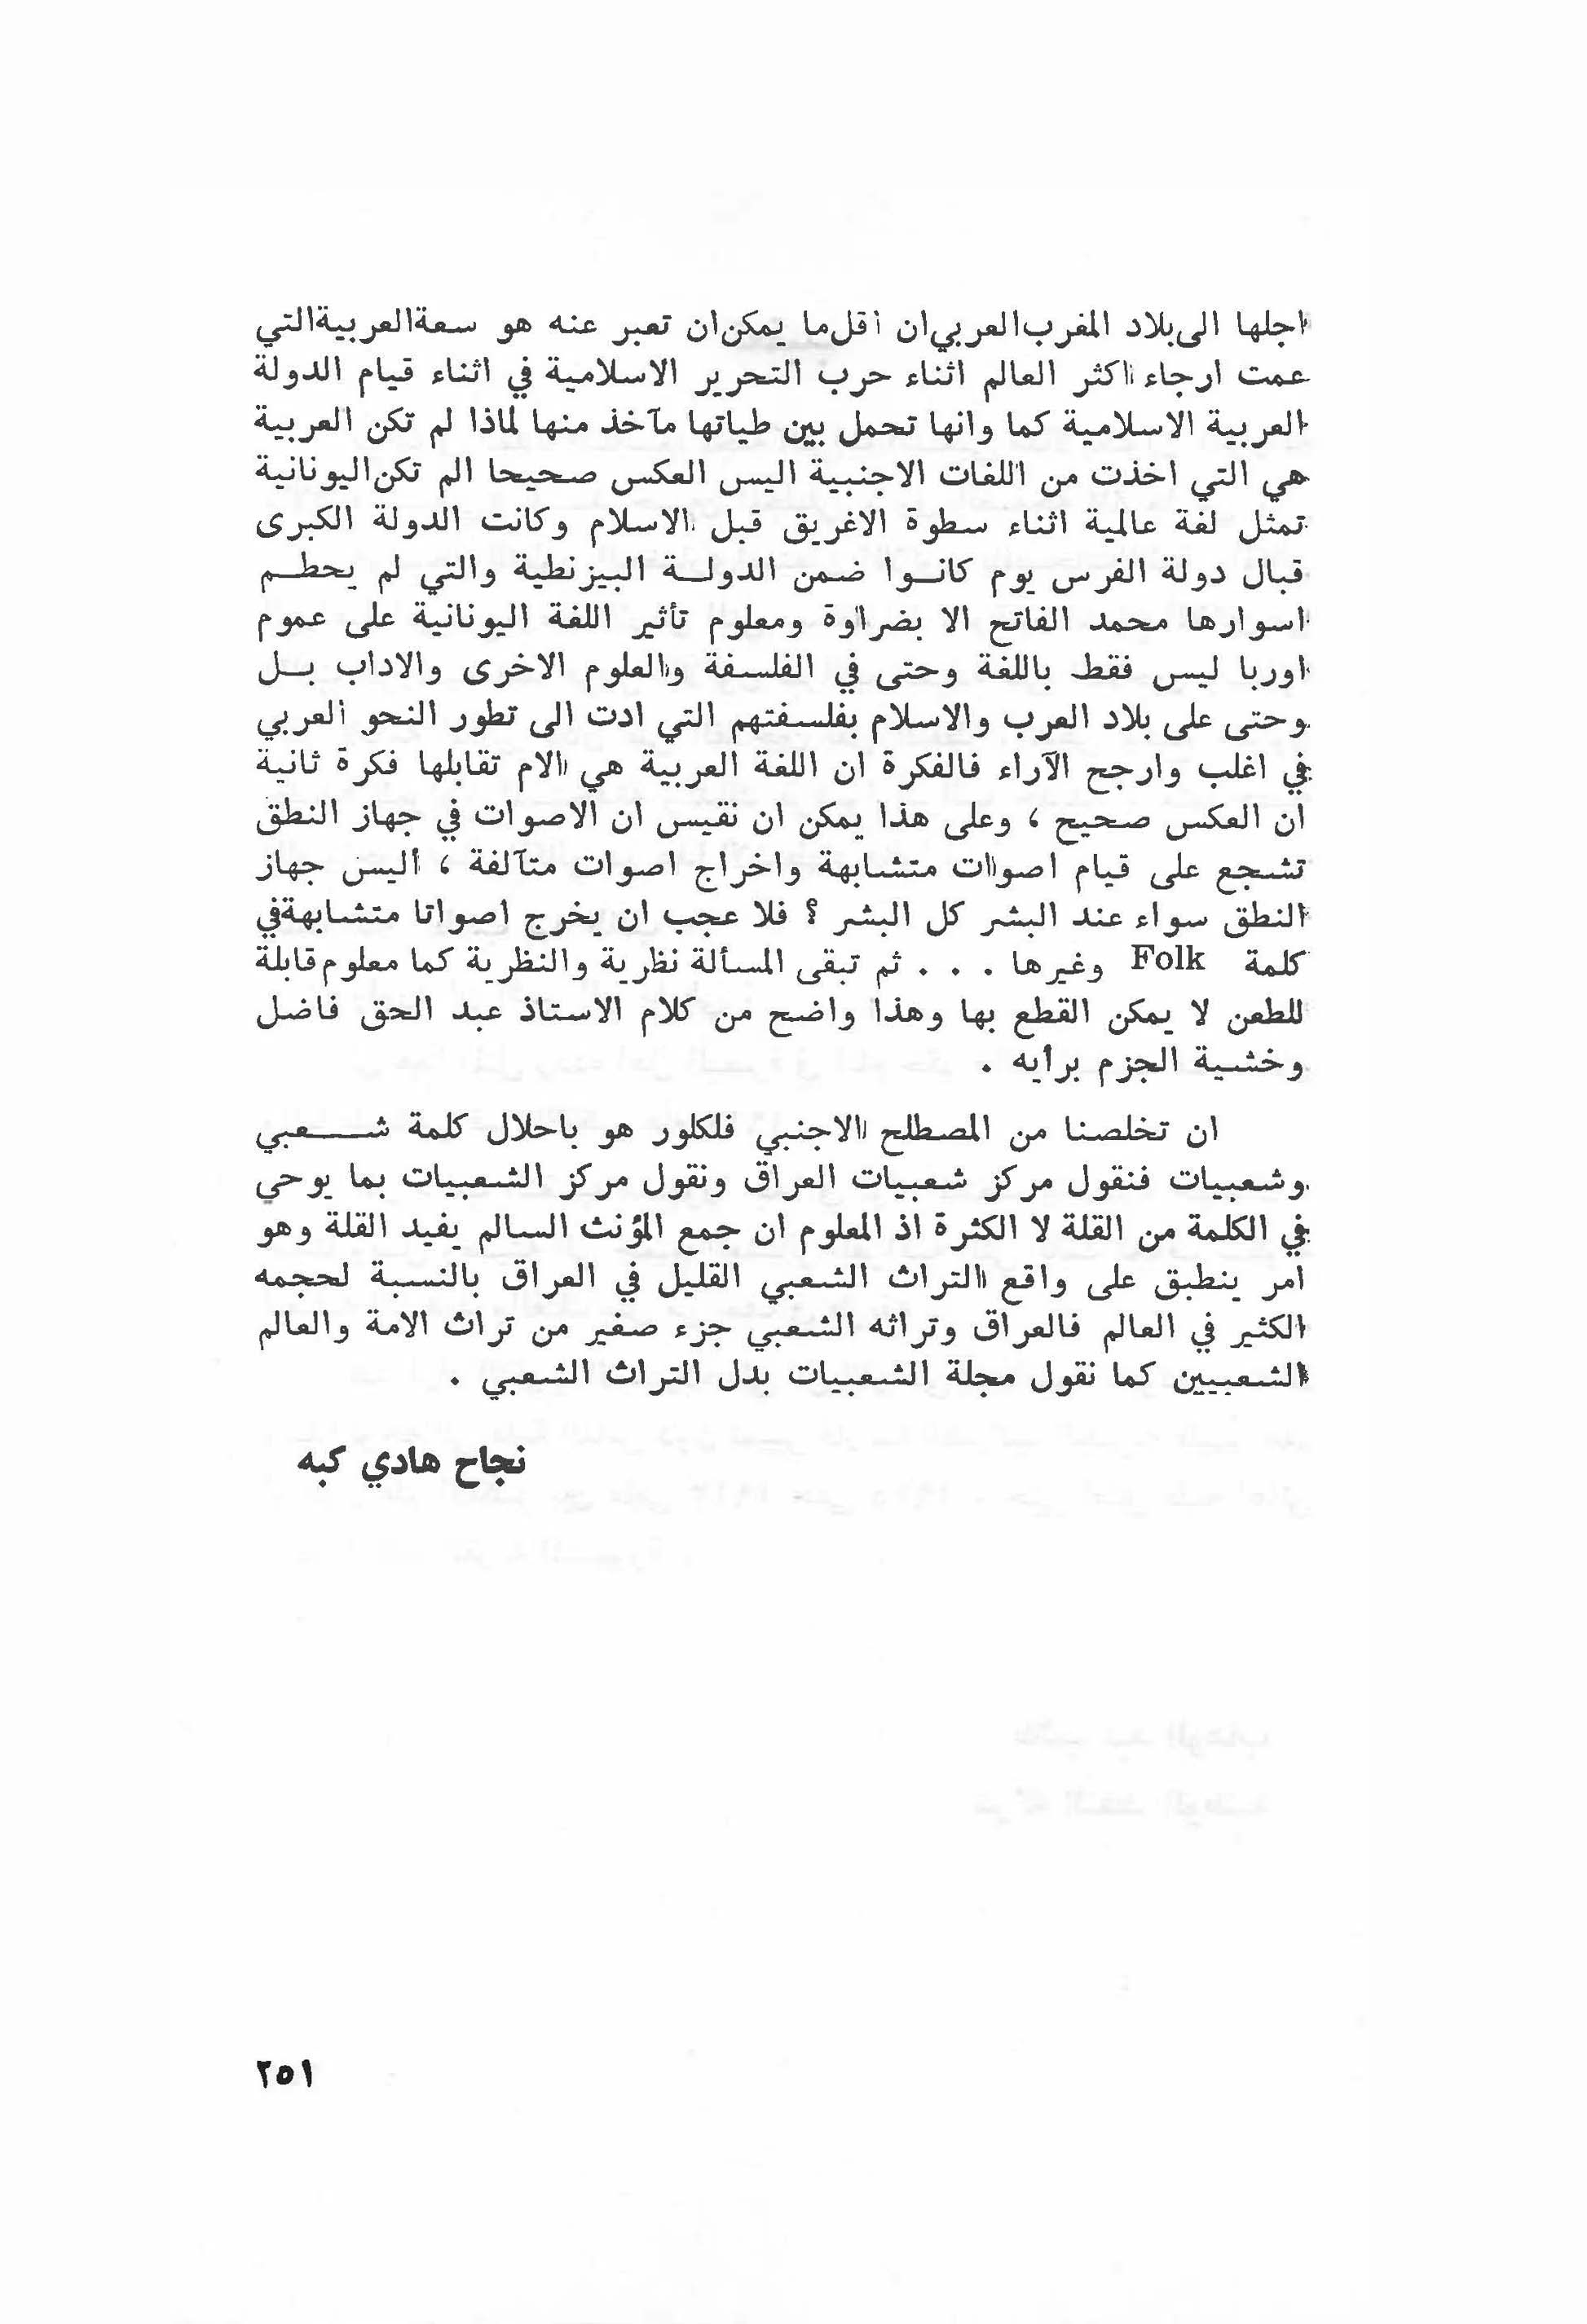 اجلها الى بلاد المغرب العربي ان اقل ما يمكن ان تعبر عنه هو سعة العربية التي
عمت ارجاء اكثر العالم اثناء حرب التحرير الاسلامية في اثناء قيام الدولة
العربية الاسلامية كما وانها تحمل بين طياتها مآخذ منها لماذا لم تكن العربية
هي التي اخذت من اللغات الاجنبية اليس العكس صحيحا الم تكن اليونانية
تمثل لغة عالمية اثناء سطوة الاغريق قبل الاسلام وكانت الدولة الكبرى
قبال دولة الفرس يوم كانـوا ضمن الدولـة البيزنطية والتي لم يحطـم
اسوارها محمد الفاتح الا بضراوة ومعلوم تأثير اللغة اليونانية على عموم
اوربا ليس فقط باللغة وحتى في الفلسفة والعلوم الاخرى والاداب بـل
وحتى على بلاد العرب والاسلام بفلسفتهم التي ادت الى تطور النحو العربي
في اغلب وارجح الآراء فالفكرة ان اللغة العربية هي الام تقابلها فكرة ثانية
ان العكس صحيح ، وعلى هذا يمكن ان نقيس ان الاصوات في جهاز النطق
تشجع على قيام اصوات متشابهة واخراج اصوات متآلفة ، أليس جهاز
النطق سواء عند البشر كل البشر ؟ فلا عجب ان يخرج اصواتا متشابهة في
كلمة Folk وغيرها . . . ثم تبقى المسألة نظرية والنظرية كما معلوم قابلة
للطعن لا يمكن القطع بها وهذا واضح من كلام الاستاذ عبد الحق فاضل
وخشية الجزم برأيه .
ان تخلصنا من المصطلح الاجنبي فلكلور هو باحلال كلمة شـــعبي
وشعبيات فنقول مركز شعبيات العراق ونقول مركز الشعبيات بما يوحي
في الكلمة من القلة لا الكثرة اذ المعلوم ان جمع المؤنث السالم يفيد القلة وهو
امر ينطبق على واقع التراث الشعبي القليل في العراق بالنسبة لحجمه
الكثير في العالم فالعراق وتراثه الشعبي جزء صغير من تراث الامة والعالم
الشعبيين كما نقول مجلة الشعبيات بدل التراث الشعبي .
نجاح هادي كبه
٢٥١